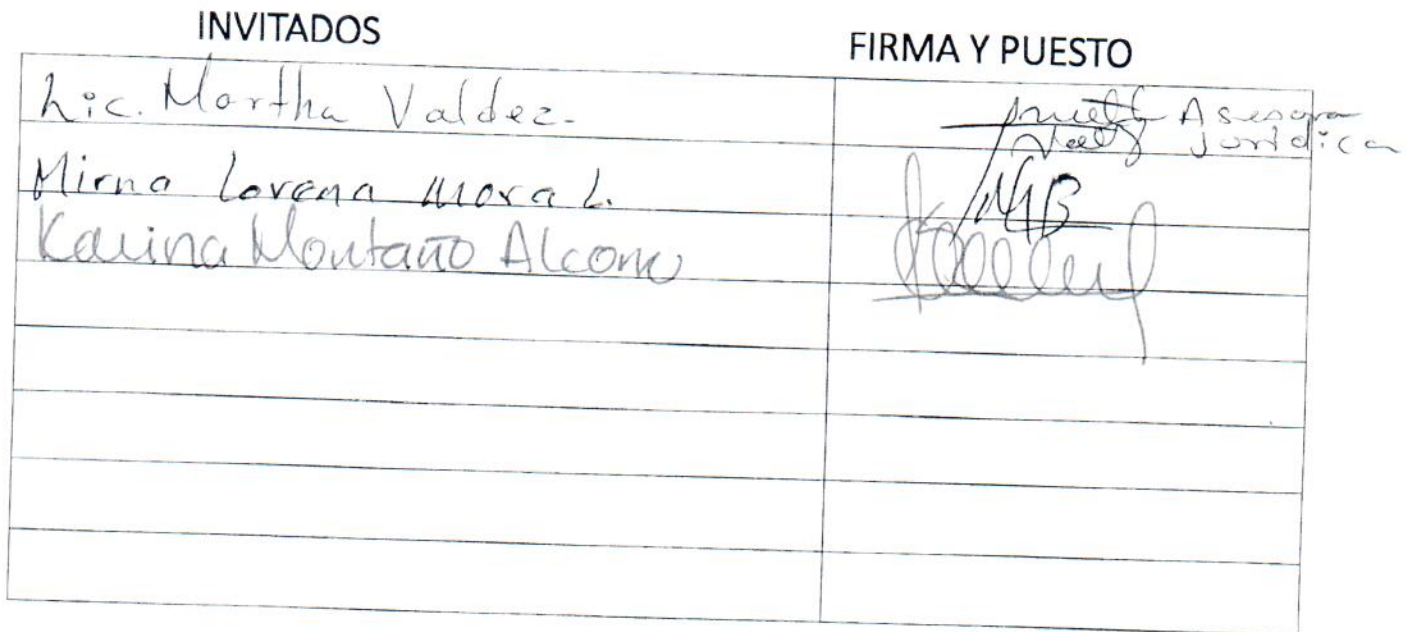 INVITADOS
FIRMA Y PUESTO
Lic. Martha Valdez.
Asesora
Jurídica
Mirna Lorena Mora L.
Karina Montaño